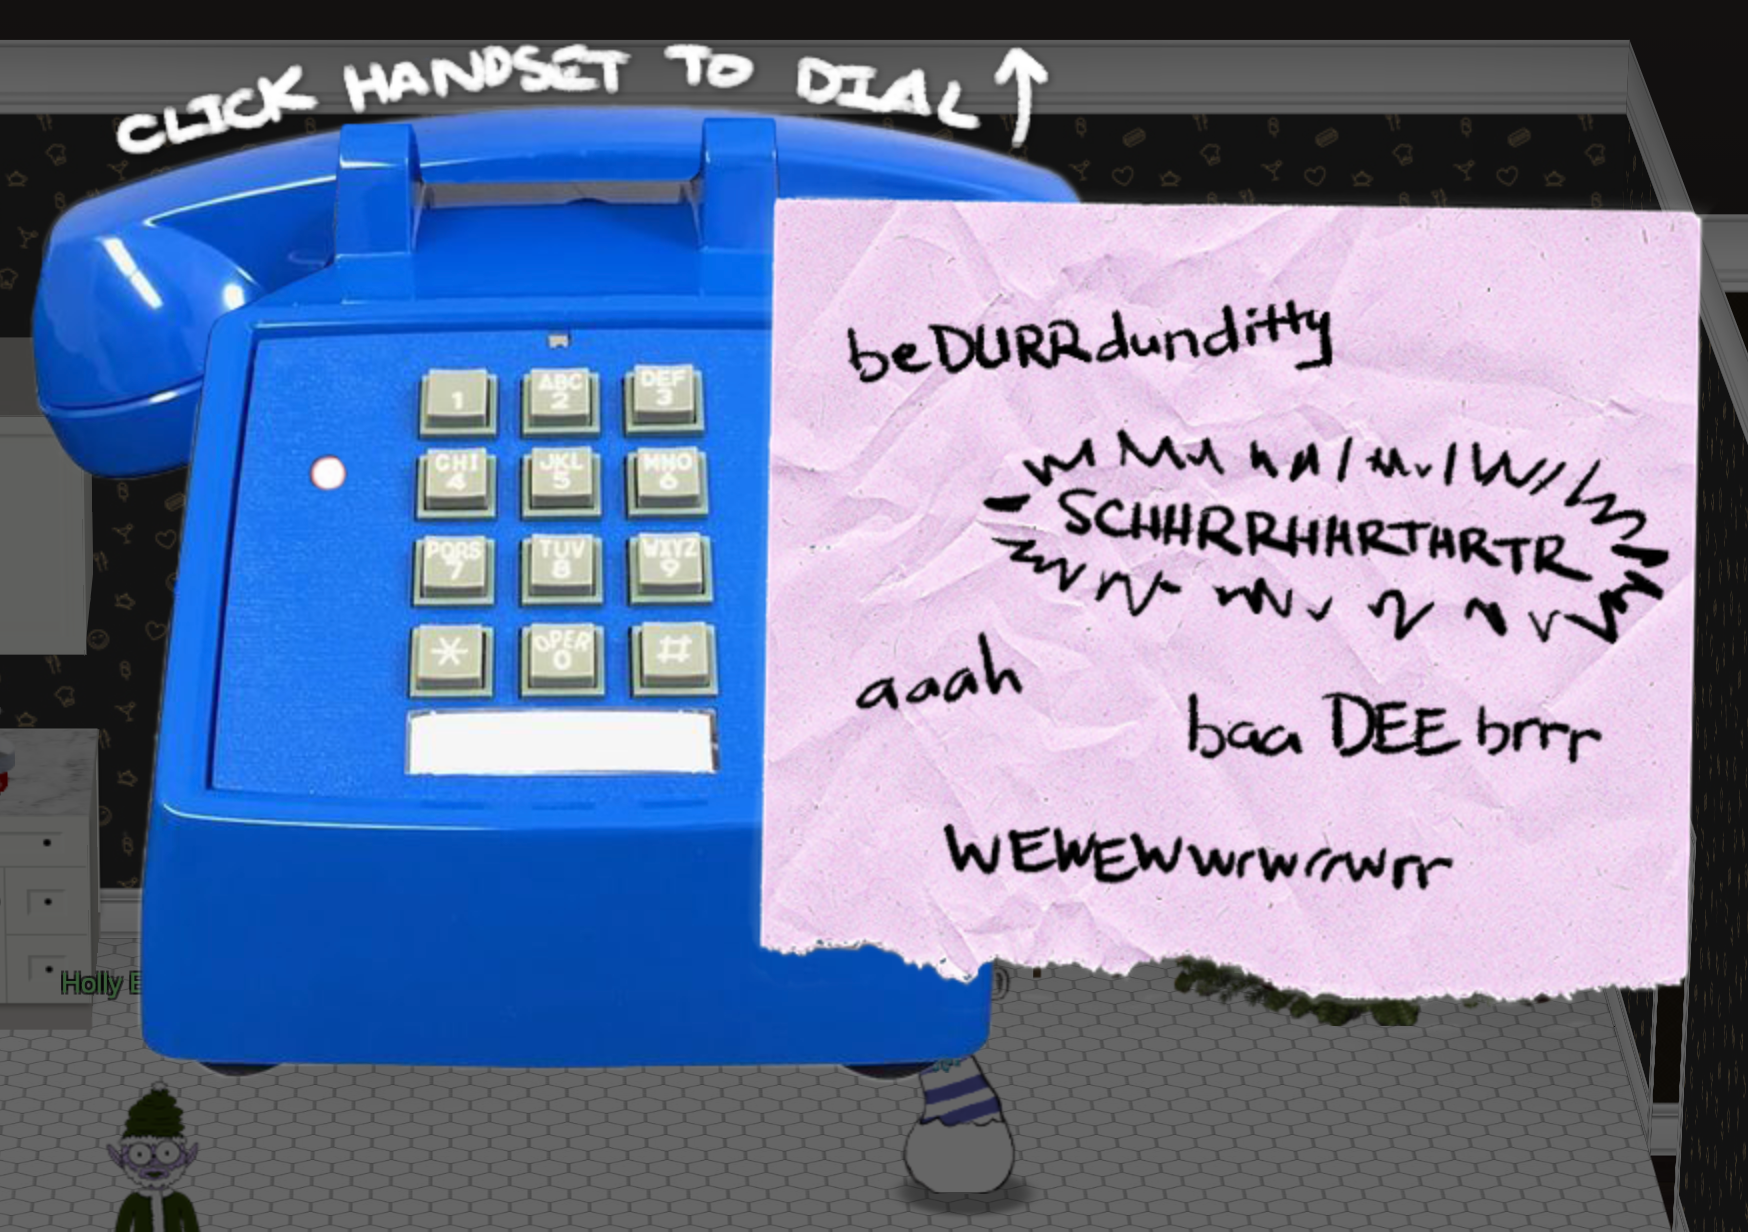 CLICK HANDSET TO DIAL ↑
1
ABC
2
DEF
3
GHI
4
JKL
5
MNO
6
PQRS
7
TUV
8
WXYZ
9
*
OPER
0
#
beDURRdunditty
SCHHRRHHRTHRTR
aaah
baa DEE brrr
WEWEWwrwrrwrr
Holly E